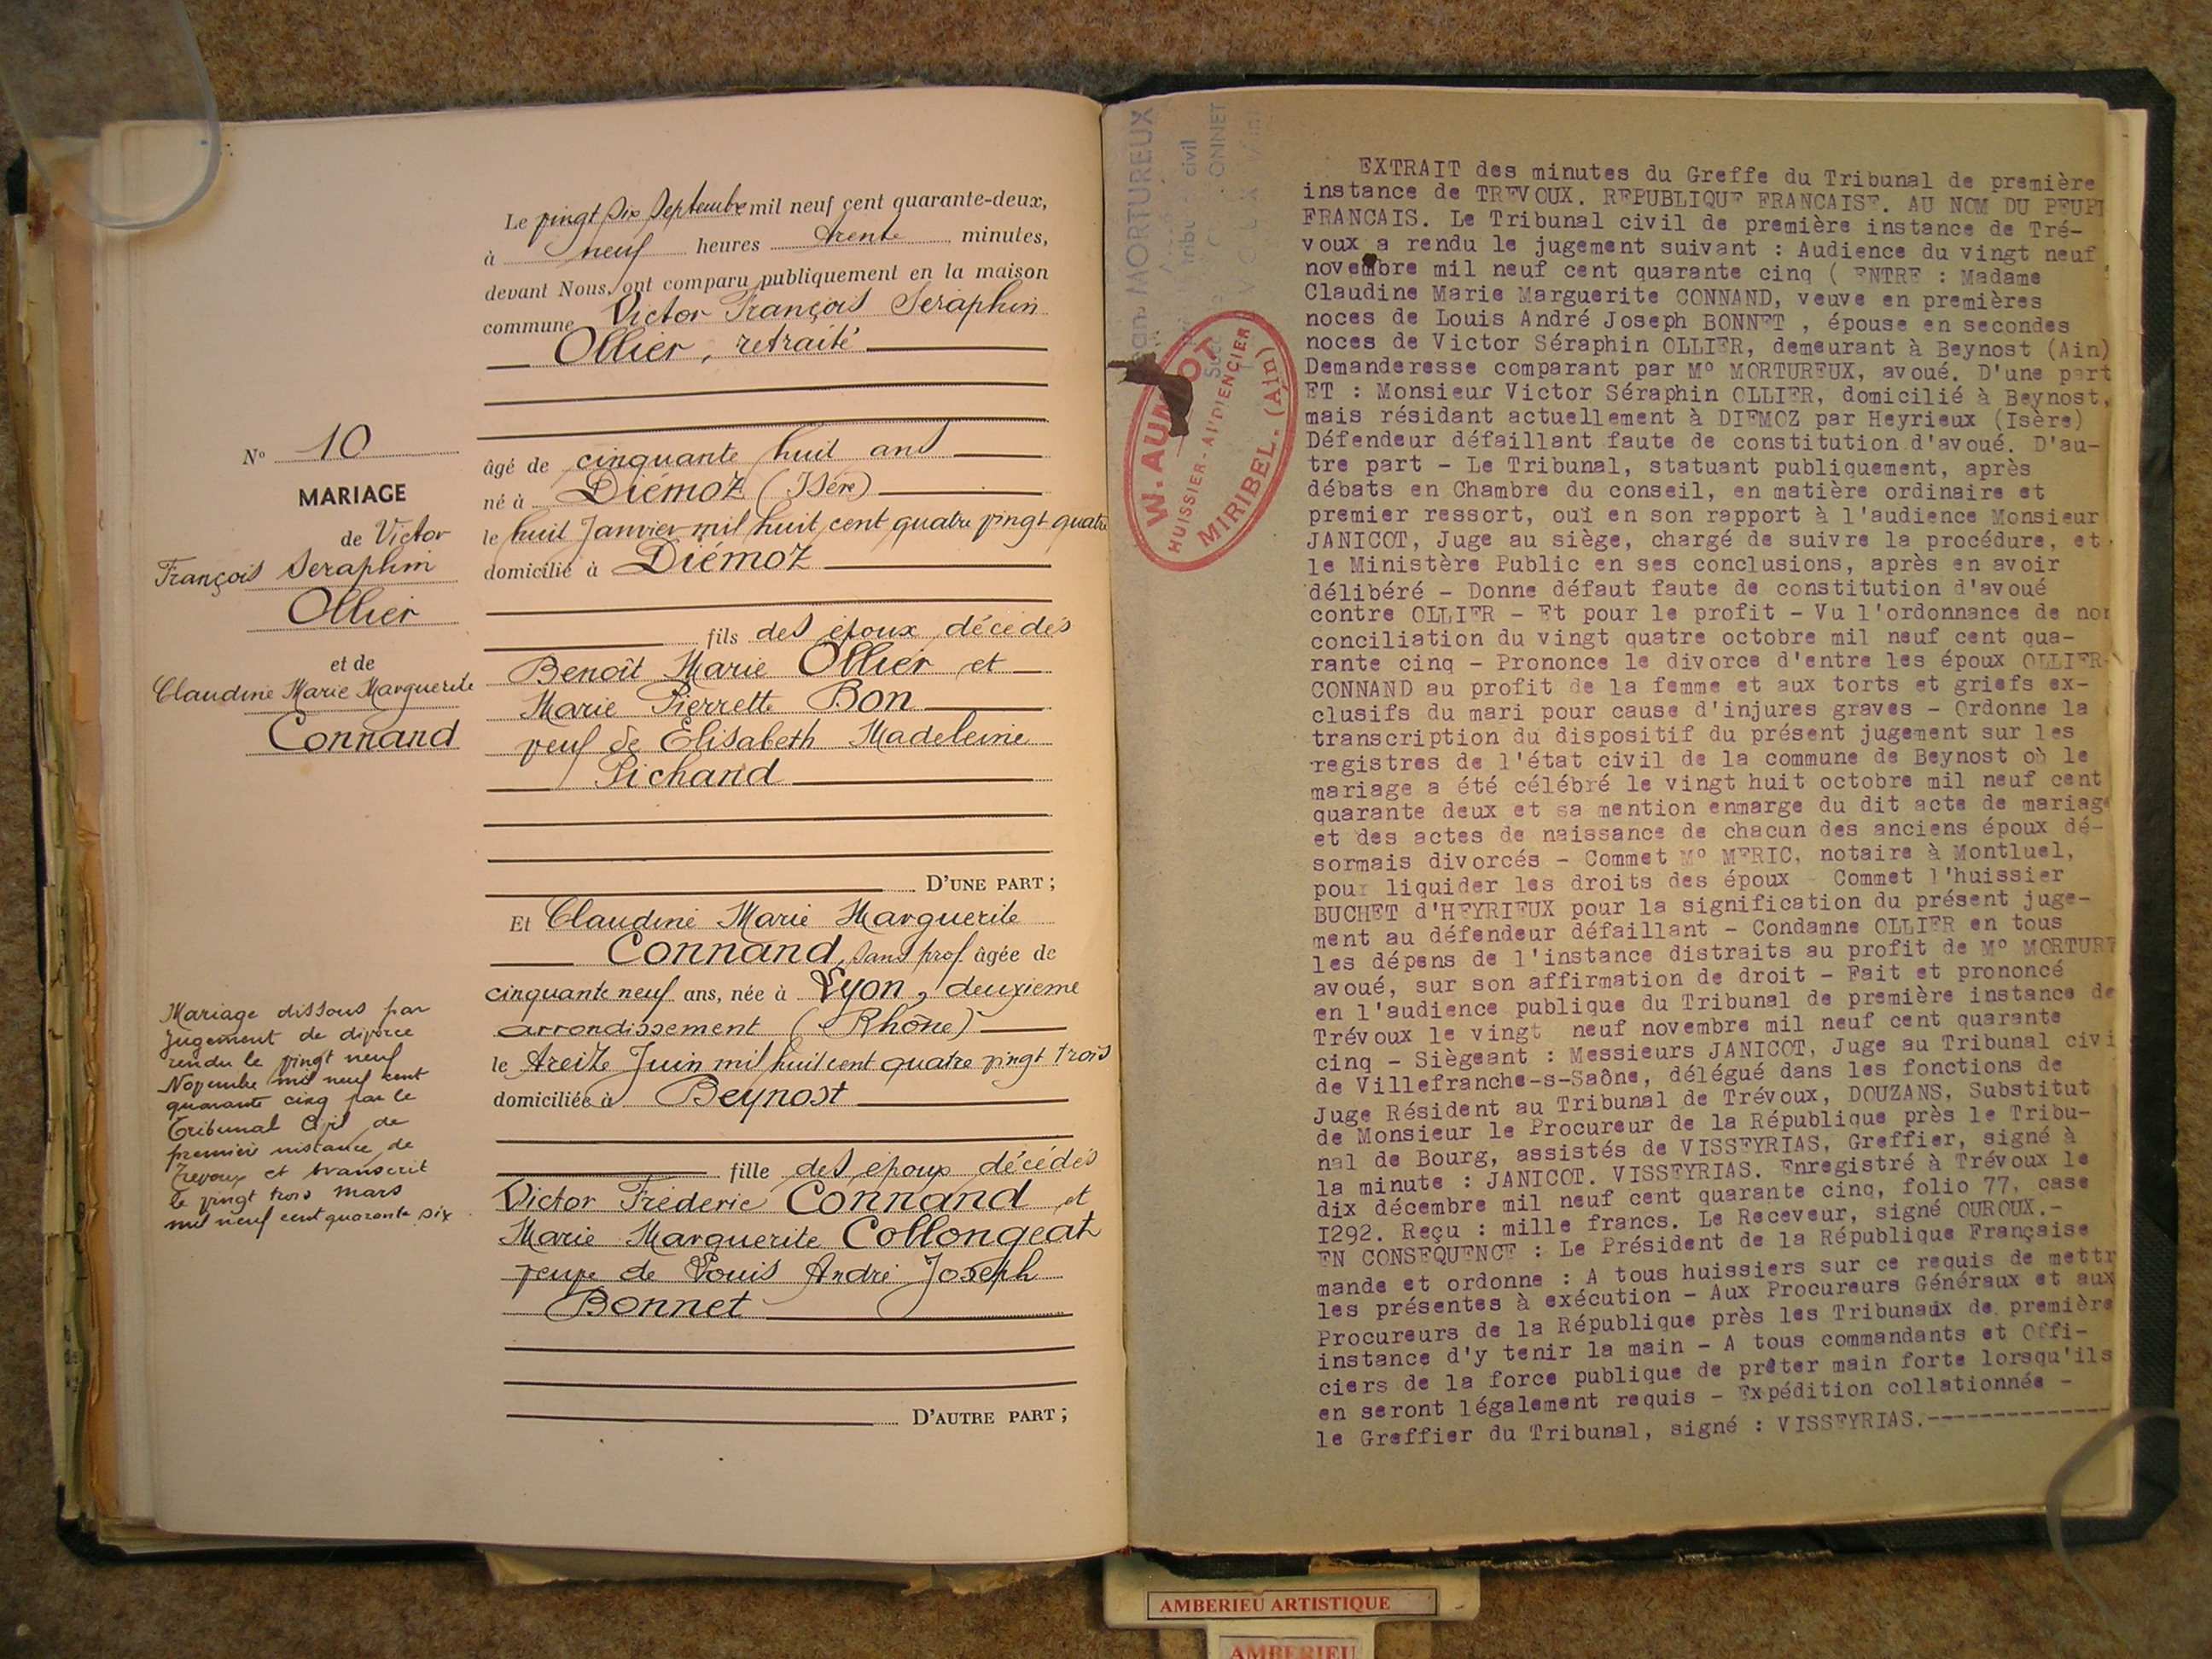 Le vingt six Septembre mil neuf cent quarante-deux,
à neuf heures trente minutes,
devant Nous, ont comparu publiquement en la maison
commune Victor François Seraphin
Ollier, retraité
N° 10
MARIAGE
de Victor
François Seraphin
Ollier
et de
Claudine Marie Marguerite
Connand
Mariage dissous par
Jugement de divorce
rendu le vingt neuf
Novembre mil neuf cent
quarante cinq par le
Tribunal Civil de
première instance de
Trevoux et transcrit
le vingt trois mars
mil neuf cent quarante six
âgé de cinquante huit ans
né à Diémoz (Isére)
le huit Janvier mil huit cent quatre vingt quatre
domicilié à Diémoz
fils des époux décédés
Benoît Marie Ollier et
Marie Pierrette Bon
veuf de Elisabeth Madeleine
Pichand
D'UNE PART ;
Et Claudine Marie Marguerite
Connand, sans prof. âgée de
cinquante neuf ans, née à Lyon, deuxieme
arrondissement (Rhône)
le treize Juin mil huit cent quatre vingt trois
domiciliée à Beynost
fille des époux décédés
Victor Fréderic Connand et
Marie Marguerite Collongeat
veuve de Louis André Joseph
Bonnet
D'AUTRE PART ;
MORTUREUX
civil
ONNET
W. AUM OT
HUISSIER-AUDIENCIER
MIRIBEL. (Ain)
EXTRAIT des minutes du Greffe du Tribunal de première
instance de TREVOUX. REPUBLIQUE FRANCAISE. AU NOM DU PEUPL
FRANCAIS. Le Tribunal civil de première instance de Tré-
voux a rendu le jugement suivant : Audience du vingt neuf
novembre mil neuf cent quarante cinq ( ENTRE : Madame
Claudine Marie Marguerite CONNAND, veuve en premières
noces de Louis André Joseph BONNET , épouse en secondes
noces de Victor Séraphin OLLIER, demeurant à Beynost (Ain)
Demanderesse comparant par M° MORTUREUX, avoué. D'une part
ET : Monsieur Victor Séraphin OLLIER, domicilié à Beynost,
mais résidant actuellement à DIEMOZ par Heyrieux (Isère)
Défendeur défaillant faute de constitution d'avoué. D'au-
tre part - Le Tribunal, statuant publiquement, après
débats en Chambre du conseil, en matière ordinaire et
premier ressort, ouï en son rapport à l'audience Monsieur
JANICOT, Juge au siège, chargé de suivre la procédure, et
le Ministère Public en ses conclusions, après en avoir
délibéré - Donne défaut faute de constitution d'avoué
contre OLLIER - Et pour le profit - Vu l'ordonnance de non
conciliation du vingt quatre octobre mil neuf cent qua-
rante cinq - Prononce le divorce d'entre les époux OLLIER-
CONNAND au profit de la femme et aux torts et griefs ex-
clusifs du mari pour cause d'injures graves - Ordonne la
transcription du dispositif du présent jugement sur les
registres de l'état civil de la commune de Beynost où le
mariage a été célébré le vingt huit octobre mil neuf cent
quarante deux et sa mention enmarge du dit acte de mariage
et des actes de naissance de chacun des anciens époux dé-
sormais divorcés - Commet M° MERIC, notaire à Montluel,
pour liquider les droits des époux - Commet l'huissier
BUCHET d'HEYRIEUX pour la signification du présent juge-
ment au défendeur défaillant - Condamne OLLIER en tous
les dépens de l'instance distraits au profit de M° MORTURE
avoué, sur son affirmation de droit - Fait et prononcé
en l'audience publique du Tribunal de première instance de
Trévoux le vingt neuf novembre mil neuf cent quarante
cinq - Siègeant : Messieurs JANICOT, Juge au Tribunal civi
de Villefranche-s-Saône, délégué dans les fonctions de
Juge Résident au Tribunal de Trévoux, DOUZANS, Substitut
de Monsieur le Procureur de la République près le Tribu-
nal de Bourg, assistés de VISSEYRIAS, Greffier, signé à
la minute : JANICOT. VISSEYRIAS. Enregistré à Trévoux le
dix décembre mil neuf cent quarante cinq, folio 77, case
I292. Reçu : mille francs. Le Receveur, signé OUROUX.-
EN CONSEQUENCE : Le Président de la République Française
mande et ordonne : A tous huissiers sur ce requis de mettr
les présentes à exécution - Aux Procureurs Généraux et aux
Procureurs de la République près les Tribunaux de première
instance d'y tenir la main - A tous commandants et Offi-
ciers de la force publique de prêter main forte lorsqu'ils
en seront légalement requis - Expédition collationnée -
le Greffier du Tribunal, signé : VISSEYRIAS.--------------
AMBERIEU ARTISTIQUE
AMBERIEU